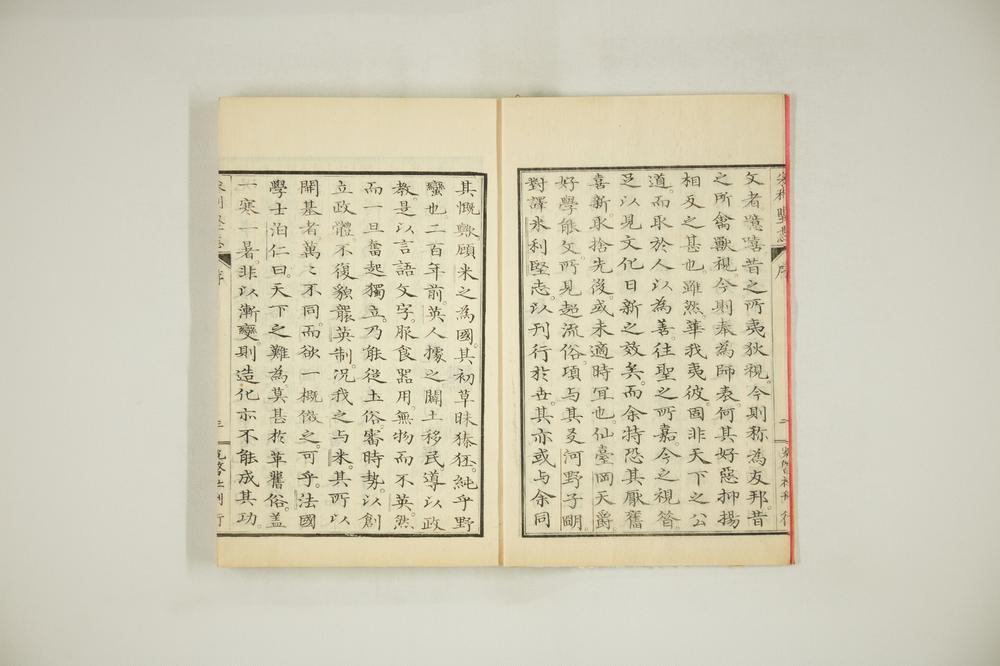 文者。噫嘻昔之所夷狄視。今則称為友邦。昔
之所禽獣視。今則奉為師表。何其好惡抑揚
相反之甚也。雖然。華我夷彼。固非天下之公
道。而取於人以為善。往聖之所嘉。今之視昝
足以見文化日新之效矣。而余特恐其厭舊
喜新。取捨先後。或未適時冝也。仙臺岡天爵
好學能文。所見超流俗。頃与其友河野子
對譯米利堅志。以刊行於世。其亦或与余同
其慨歟。顧米之為國。其初草昧獉狉。純乎野
蠻也。二百年前。英人據之。闢土移民。導以政
教。是以言語文字。服食器用。無物而不英。然
而一旦奮起獨立。乃能從土俗。審時勢。以創
立政體。不復貌襲英制。況我之与米。其所以
開基者。萬〻不同。而欲一概傚之。可乎。法國
學士泊仁曰。天下之難為。莫甚於革舊俗。蓋
一寒一暑。非以漸變。則造化亦不能成其功。
序
二
序
三